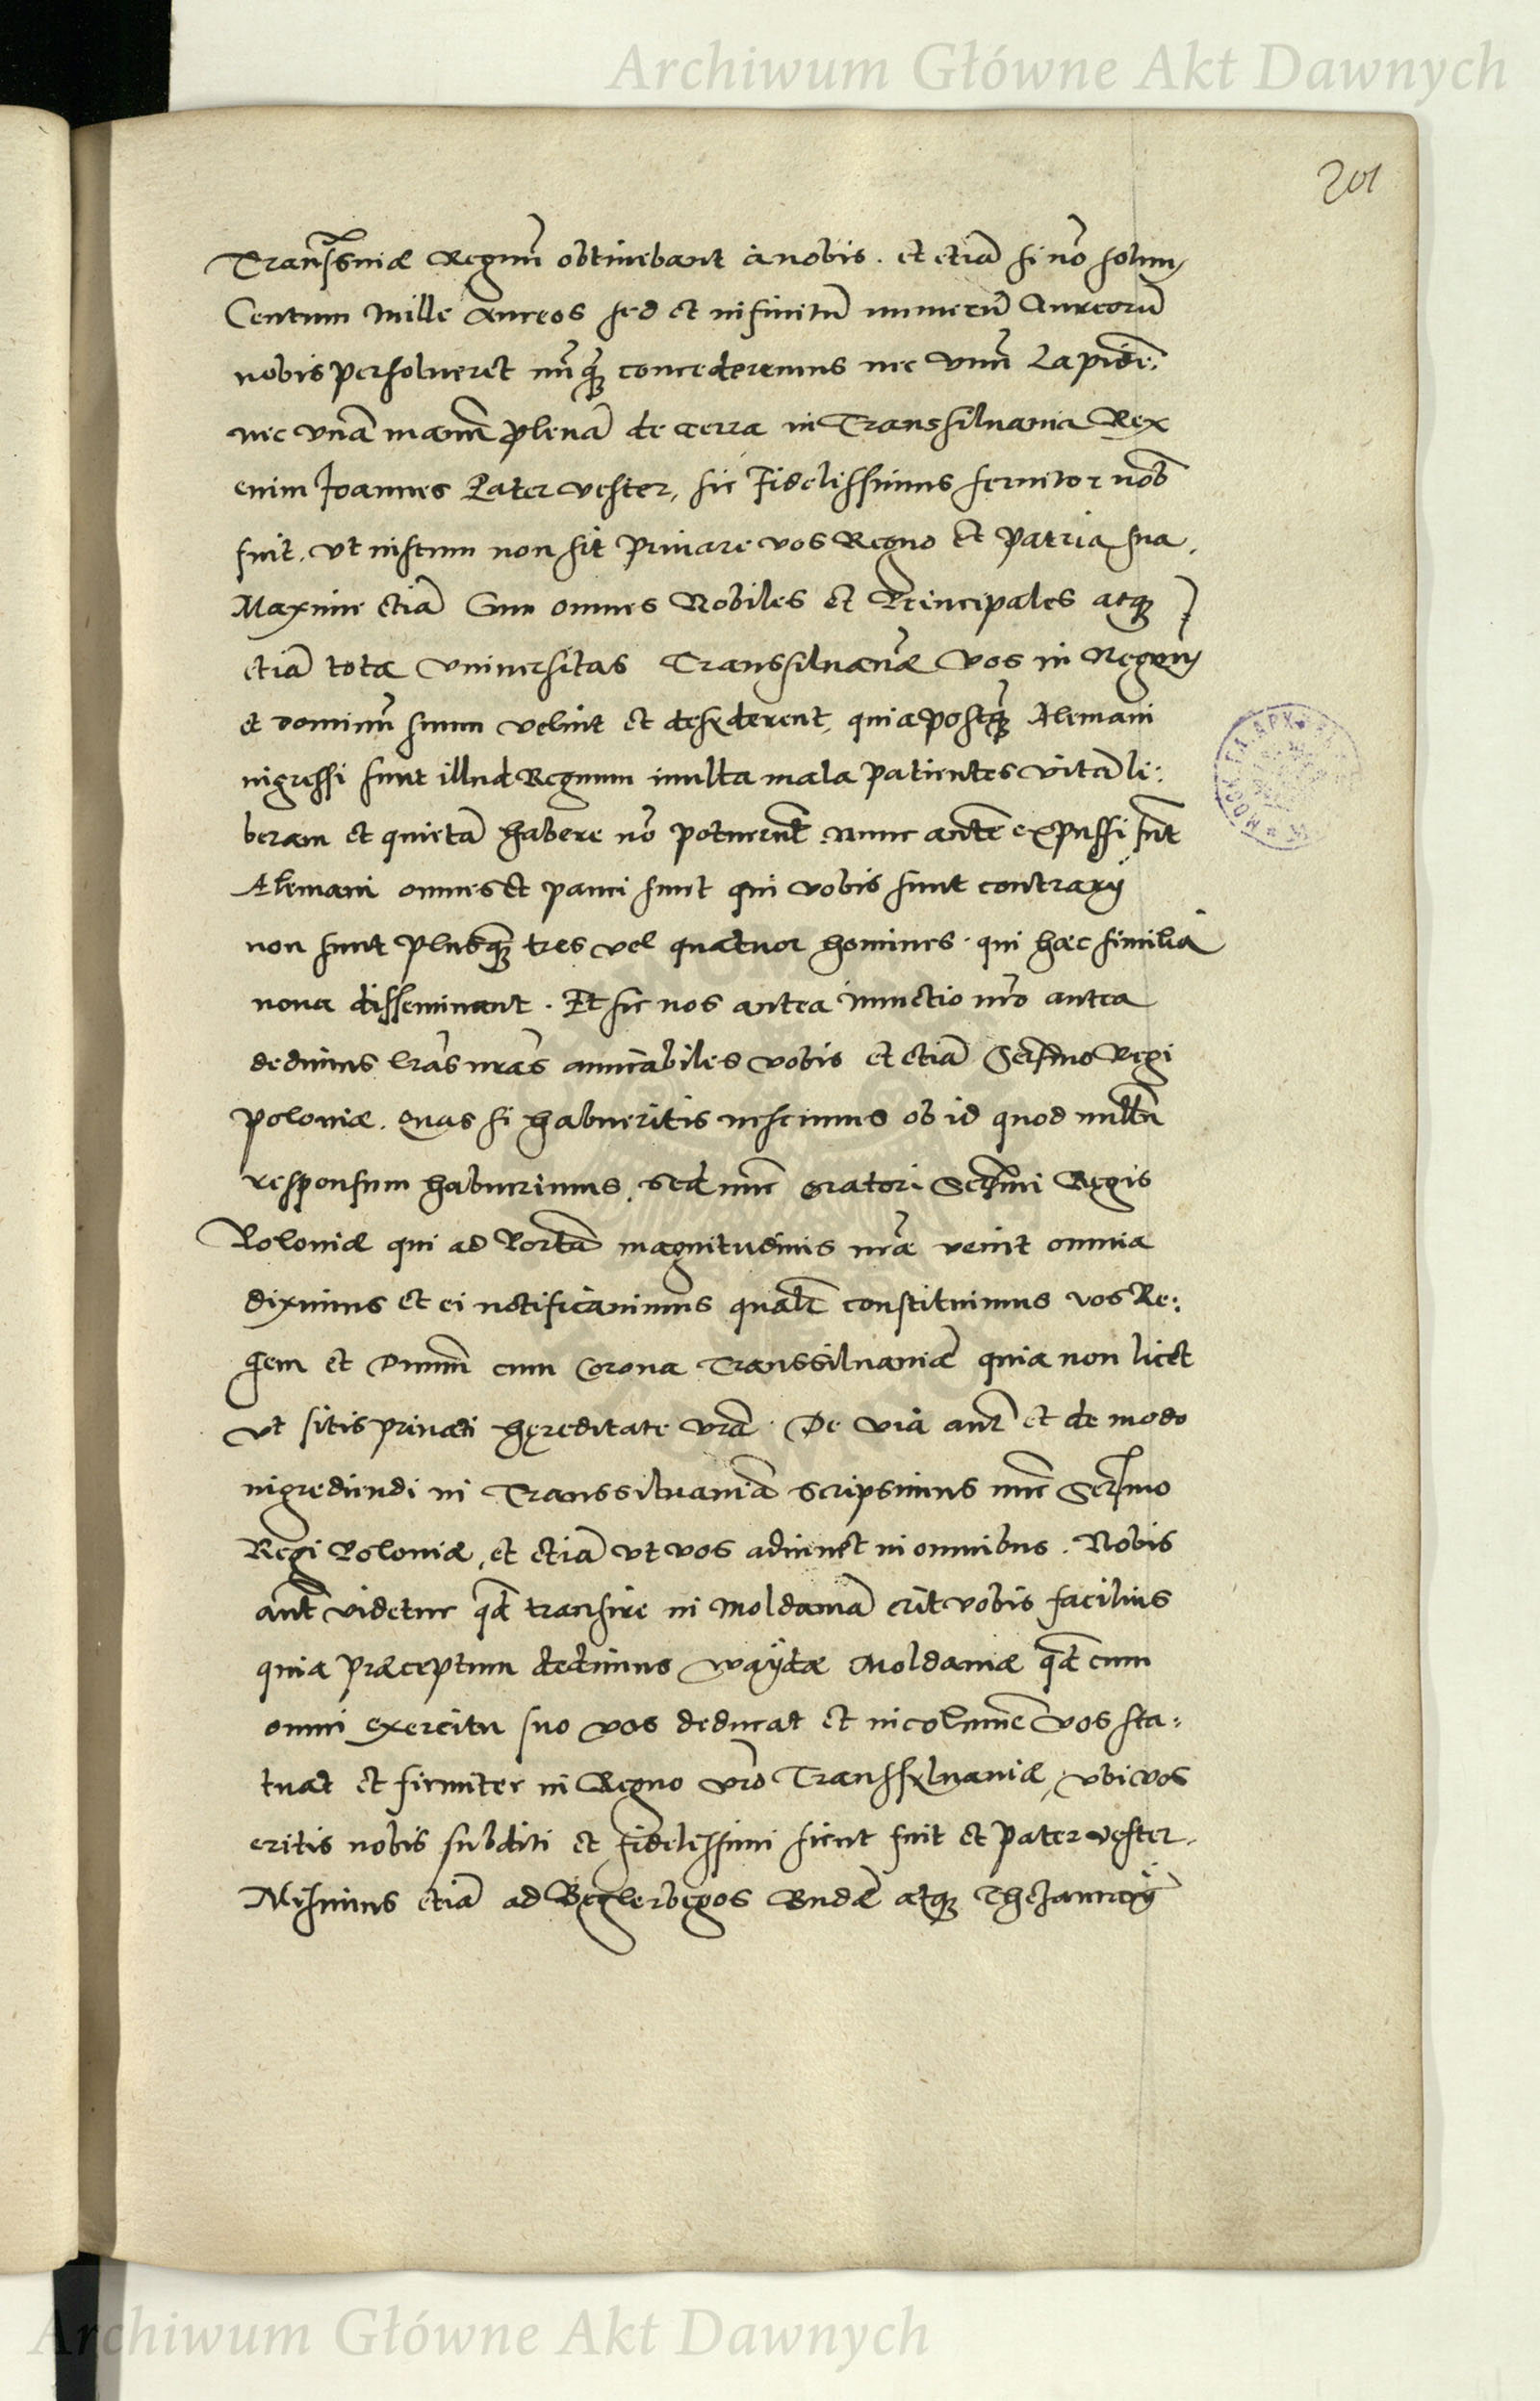 Archiwum Główne Akt Dawnych
201
Transsniæ Regnũ obtinebant à nobis. et etiã si nõ solum
Centum mille aureos sed et infinitũ numerũ Aureorũ
nobis persolueret nũq̃ concederemus nec vnũ Lapidẽ:
nec vnã manũ plenã de terra in Transsiluania Rex
enim Joannes Pater vester, sic Fidelissimus seruitor nob̃
fuit, vt iustum non sit priuare vos Regno et patria sua.
Maxime etiã Cum omnes Nobiles et Principales atq;
etiã tota vniuersitas Transsiluaniæ vos in Regem
et dominũ suum velint et desyderent, quia postq̃ Alemani
ingressi sunt illud Regnum multa mala patientes vitã li:
beram et quietã habere nõ potuerũt. Nunc autẽ expulsi sũt
Alemani omnes et pauci sunt qui vobis sunt contrarij
non sunt plusq̃ tres vel quatuor homines. qui hæc similia
noua disseminant. Et sic nos antea nunctio nr̃o antea
dedimus lr̃as nr̃as amicabiles vobis et etiã Ser̃mo Regi
Poloniæ. Quas si habueritis nescimus ob id quod nullũ
responsum habuerimus. Sed nũc oratori Ser̃mi Regis
Poloniæ qui ad Portã magnitudinis nr̃æ venit omnia
diximus et ei notificauimus qualr̃ constituimus vos Re:
gem et Dnũm cum Corona Transsiluaniæ quia non licet
vt sitis priuati hęreditate vr̃a. De via aut̃ et de modo
ingrediendi in Transsiluaniã scripsimus nũc Ser̃mo
Regi Poloniæ, et etiã vt vos adiuuet in omnibus. Nobis
aut̃ videtur qd̃ transire in Moldauiã erit vobis facilius
quia præceptum dedimus Wayᵭæ Moldauiæ qd̃ cum
omni exercitu suo vos deducat et incolumẽ vos sta:
tuat et firmiter in Regno vr̃o Transsyluaniæ, vbi vos
eritis nobis subditi et fidelissimi sicut fuit et pater vester.
Misimus etiã ad Beglerbegos Budæ atq; Thesaurarij
Archiwum Główne Akt Dawnych